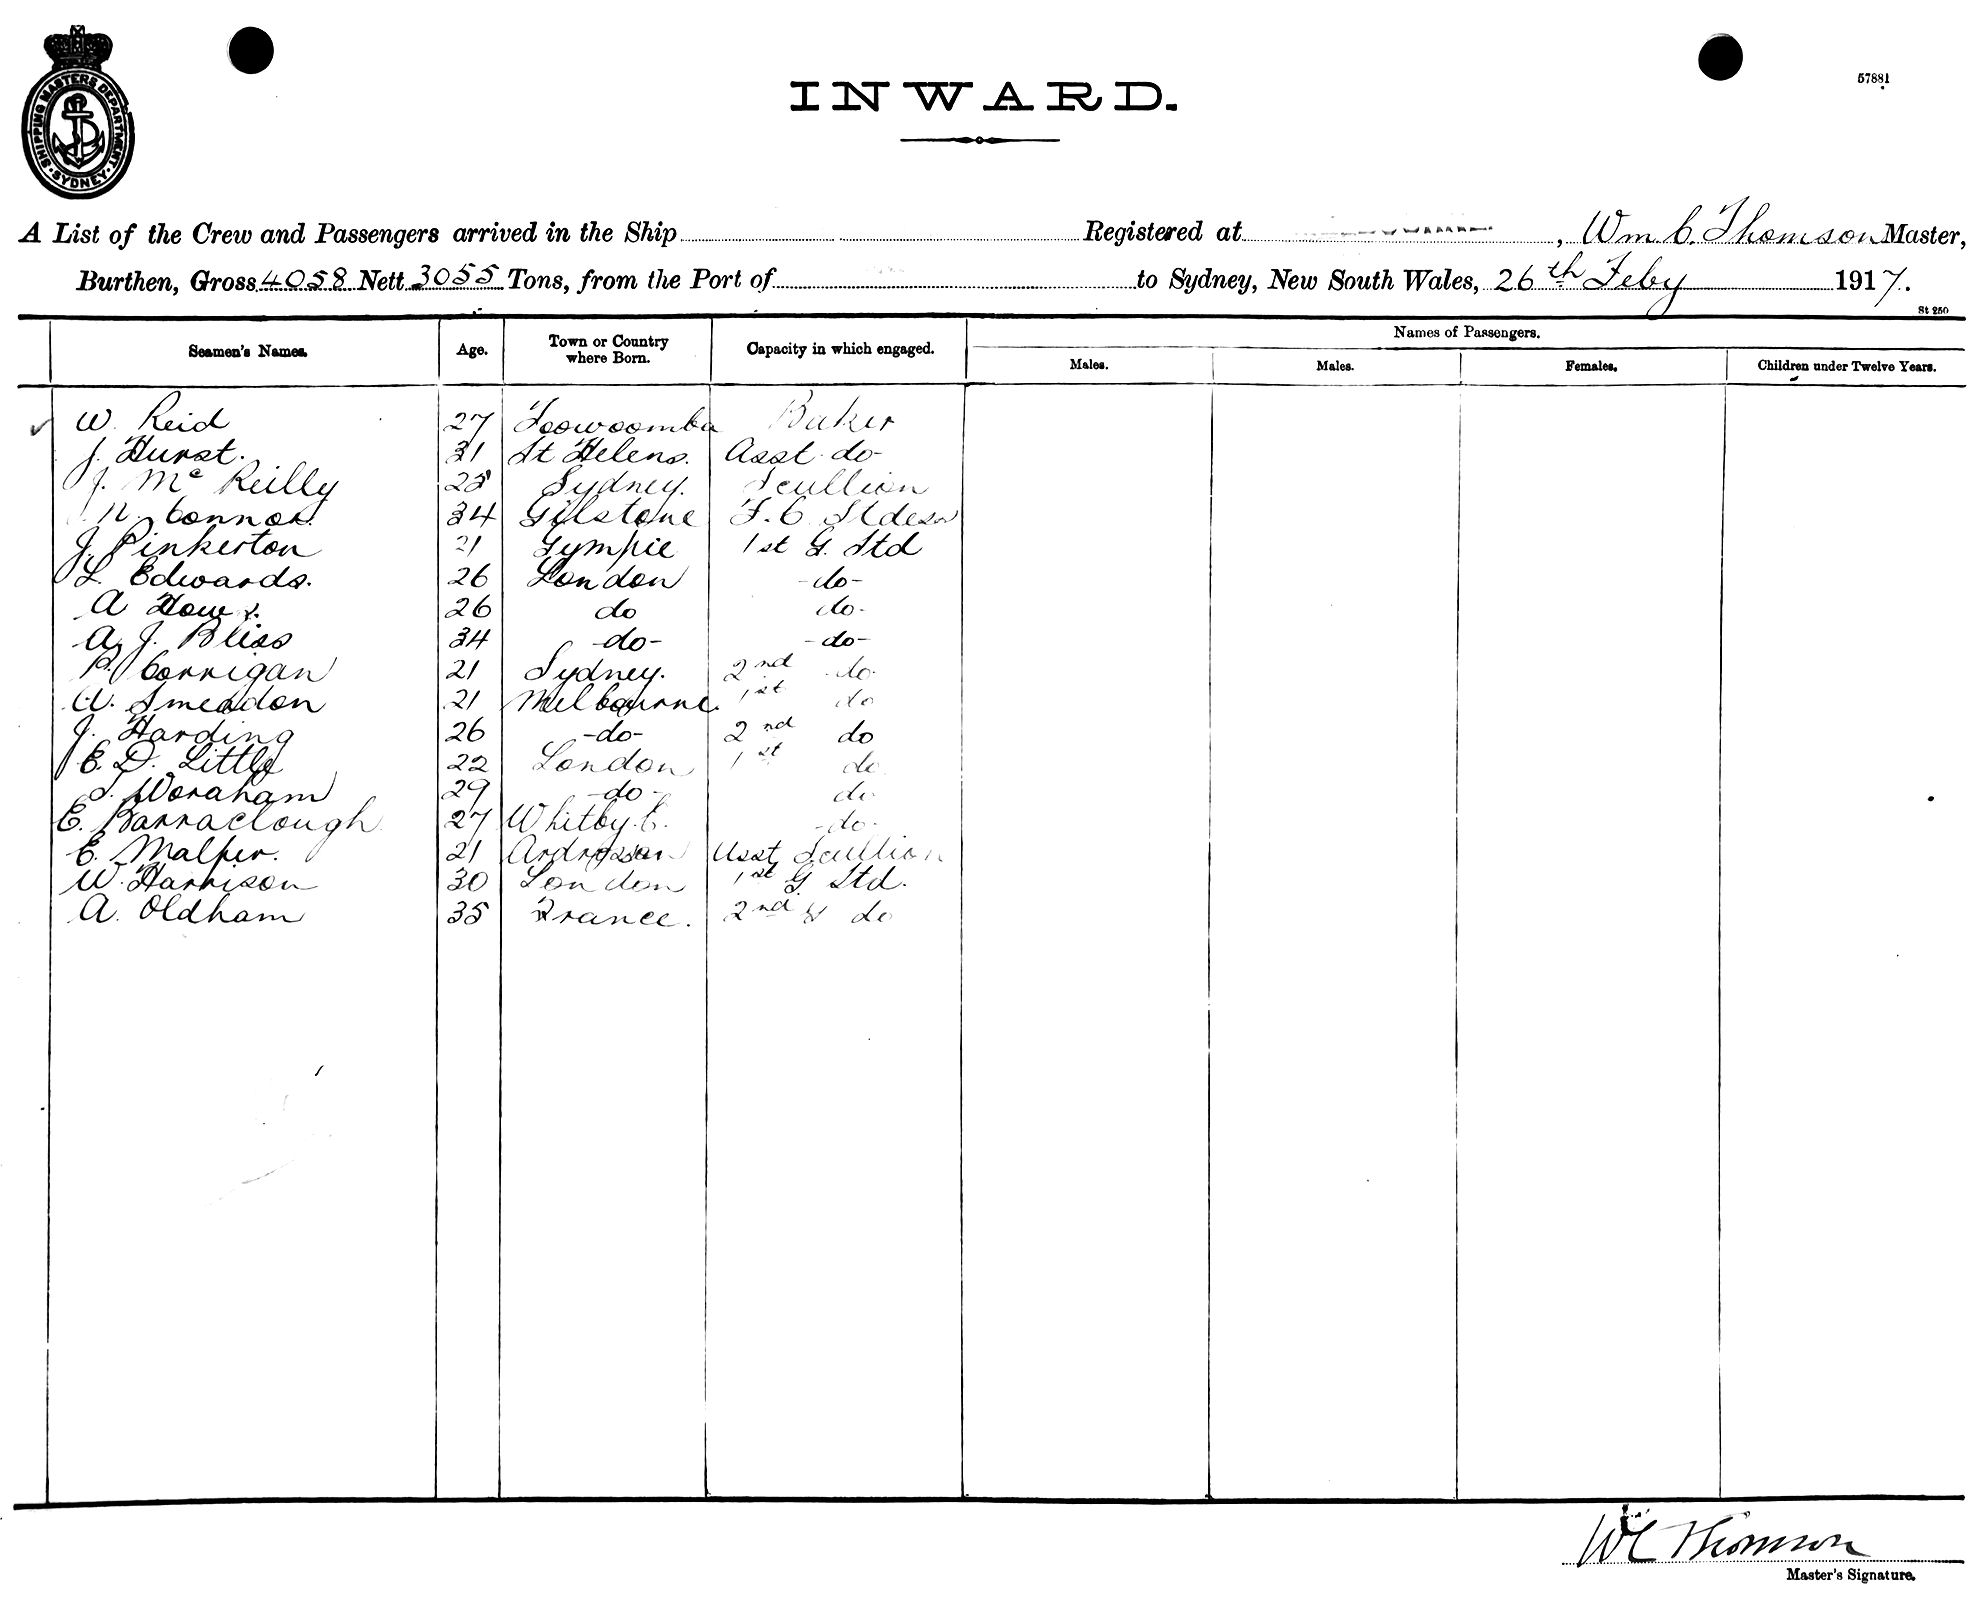 SHIPPING MASTERS DEPARTMENT
SYDNEY
57881
INWARD.
A List of the Crew and Passengers arrived in the Ship Registered at , Wm C. Thomson Master,
Burthen, Gross 4058 Nett 3055 Tons, from the Port of to Sydney, New South Wales, 26th Feby 1917.
St 250
Seamen's Names. Age. Town or Country where Born. Capacity in which engaged. Names of Passengers.
Males. Males. Females. Children under Twelve Years.
W. Reid 27 Toowoomba Baker
J. Hurst. 31 St Helens. Asst. do-
J. Mc Reilly 28 Sydney. Scullion
Connor. 34 Gilstone F. C.
J. Pinkerton 21 Gympie 1st G. Std
L. Edwards. 26 London -do-
A 26 do do-
A. J. Bliss 34 -do- -do-
P. Corrigan 21 Sydney. 2nd do-
A. Smeadon 21 Melbourne. 1st do
J. Harding 26 -do- 2nd do
E. D. Little 22 London 1st do
29 -do- do
E. Barraclough 27 Whitby. -do-
E. Malper. 21 Ardrossan Asst Scullion
W. Harrison 30 London 1st G. Std.
A. Oldham 35 France. 2nd do
W C Thomson
Master's Signature.